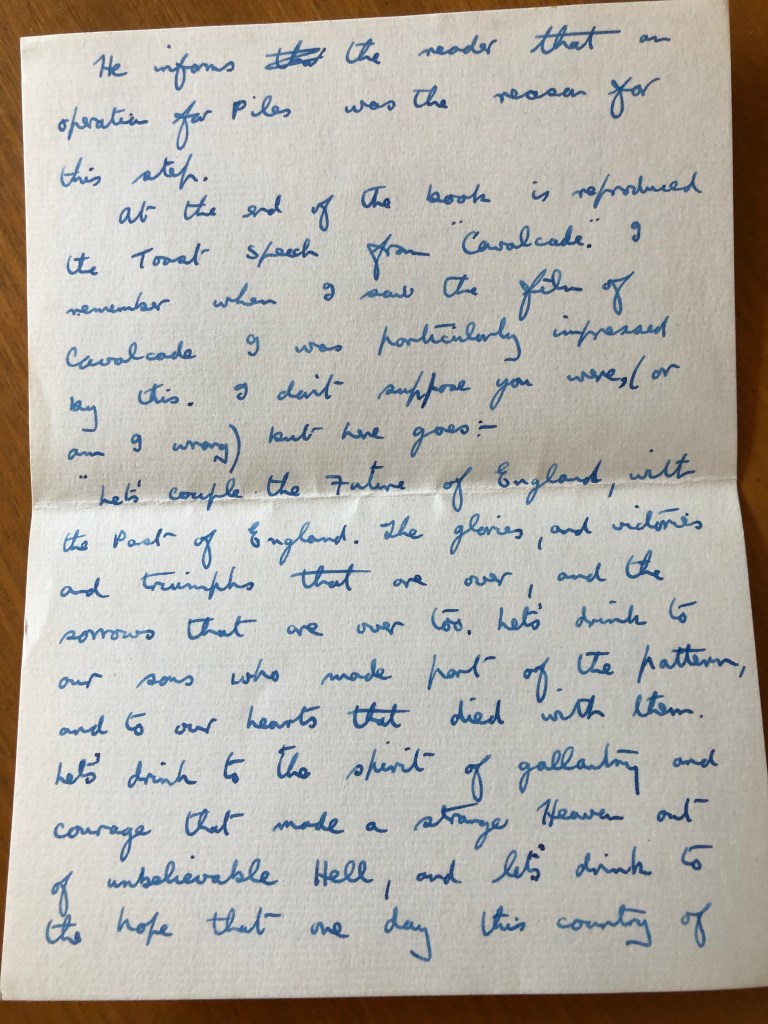 He informs the reader that an
operation for Piles was the reason for
this step.
At the end of the book is reproduced
the Toast Speech from "Cavalcade." I
remember when I saw the film of
Cavalcade I was particularly impressed
by this. I don't suppose you were, (or
am I wrong) but here goes:-
"Lets' couple the Future of England, with
the Past of England. The glories, and victories
and triumphs that are over, and the
sorrows that are over too. Lets' drink to
our sons who made part of the pattern,
and to our hearts that died with them.
Lets' drink to the spirit of gallantry and
courage that made a strange Heaven out
of unbelievable Hell, and lets' drink to
the hope that one day this country of